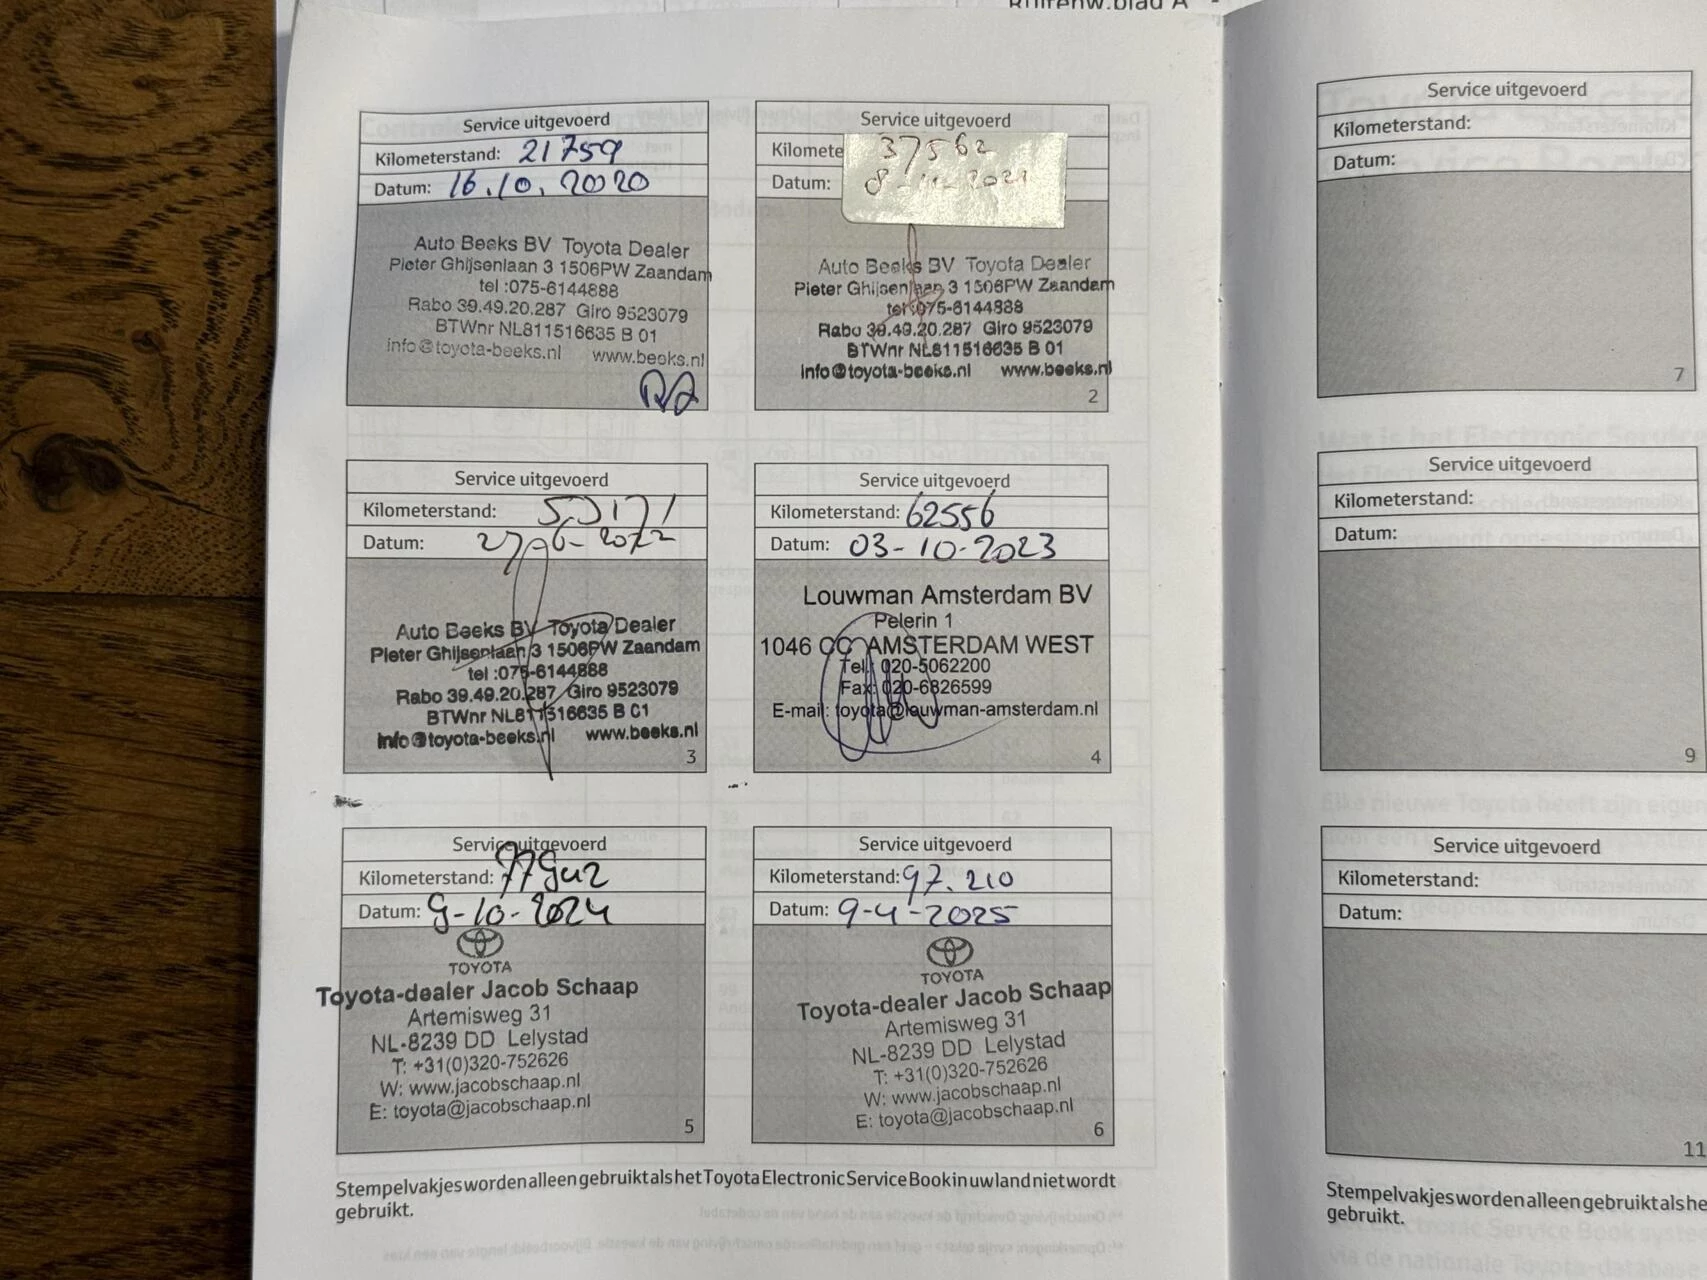 Service uitgevoerd
Kilometerstand: 21759
Datum: 16.10.2020
Auto Beeks BV Toyota Dealer
Pieter Ghijsenlaan 3 1506PW Zaandam
tel :075-6144888
Rabo 39.49.20.287 Giro 9523079
BTWnr NL811516635 B 01
info@toyota-beeks.nl www.beeks.nl
Service uitgevoerd
Kilomete 37562
Datum: 2021
Auto Beeks BV Toyota Dealer
Pieter Ghijsenlaan 3 1506PW Zaandam
tel:075-6144888
Rabo 39.49.20.287 Giro 9523079
BTWnr NL811516635 B 01
info@toyota-beeks.nl www.beeks.nl
2
Service uitgevoerd
Kilometerstand:
Datum: 2022
Auto Beeks BV Toyota Dealer
Pieter Ghijsenlaan 3 1506PW Zaandam
tel :075-6144888
Rabo 39.49.20.287 Giro 9523079
BTWnr NL811516635 B 01
info@toyota-beeks.nl www.beeks.nl
3
Service uitgevoerd
Kilometerstand: 62556
Datum: 03-10-2023
Louwman Amsterdam BV
Pelerin 1
1046 CC AMSTERDAM WEST
Tel: 020-5062200
Fax: 020-6826599
E-mail: toyota@louwman-amsterdam.nl
4
Service uitgevoerd
Kilometerstand:
Datum: 9-10-2024
TOYOTA
Toyota-dealer Jacob Schaap
Artemisweg 31
NL-8239 DD Lelystad
T: +31(0)320-752626
W: www.jacobschaap.nl
E: toyota@jacobschaap.nl
5
Service uitgevoerd
Kilometerstand: 97.210
Datum: 9-4-2025
TOYOTA
Toyota-dealer Jacob Schaap
Artemisweg 31
NL-8239 DD Lelystad
T: +31(0)320-752626
W: www.jacobschaap.nl
E: toyota@jacobschaap.nl
6
Stempelvakjes worden alleen gebruikt als het Toyota Electronic Service Book in uw land niet wordt
gebruikt.
Service uitgevoerd
Kilometerstand:
Datum:
7
Service uitgevoerd
Kilometerstand:
Datum:
9
Service uitgevoerd
Kilometerstand:
Datum:
11
Stempelvakjes worden alleen gebruikt als he
gebruikt.